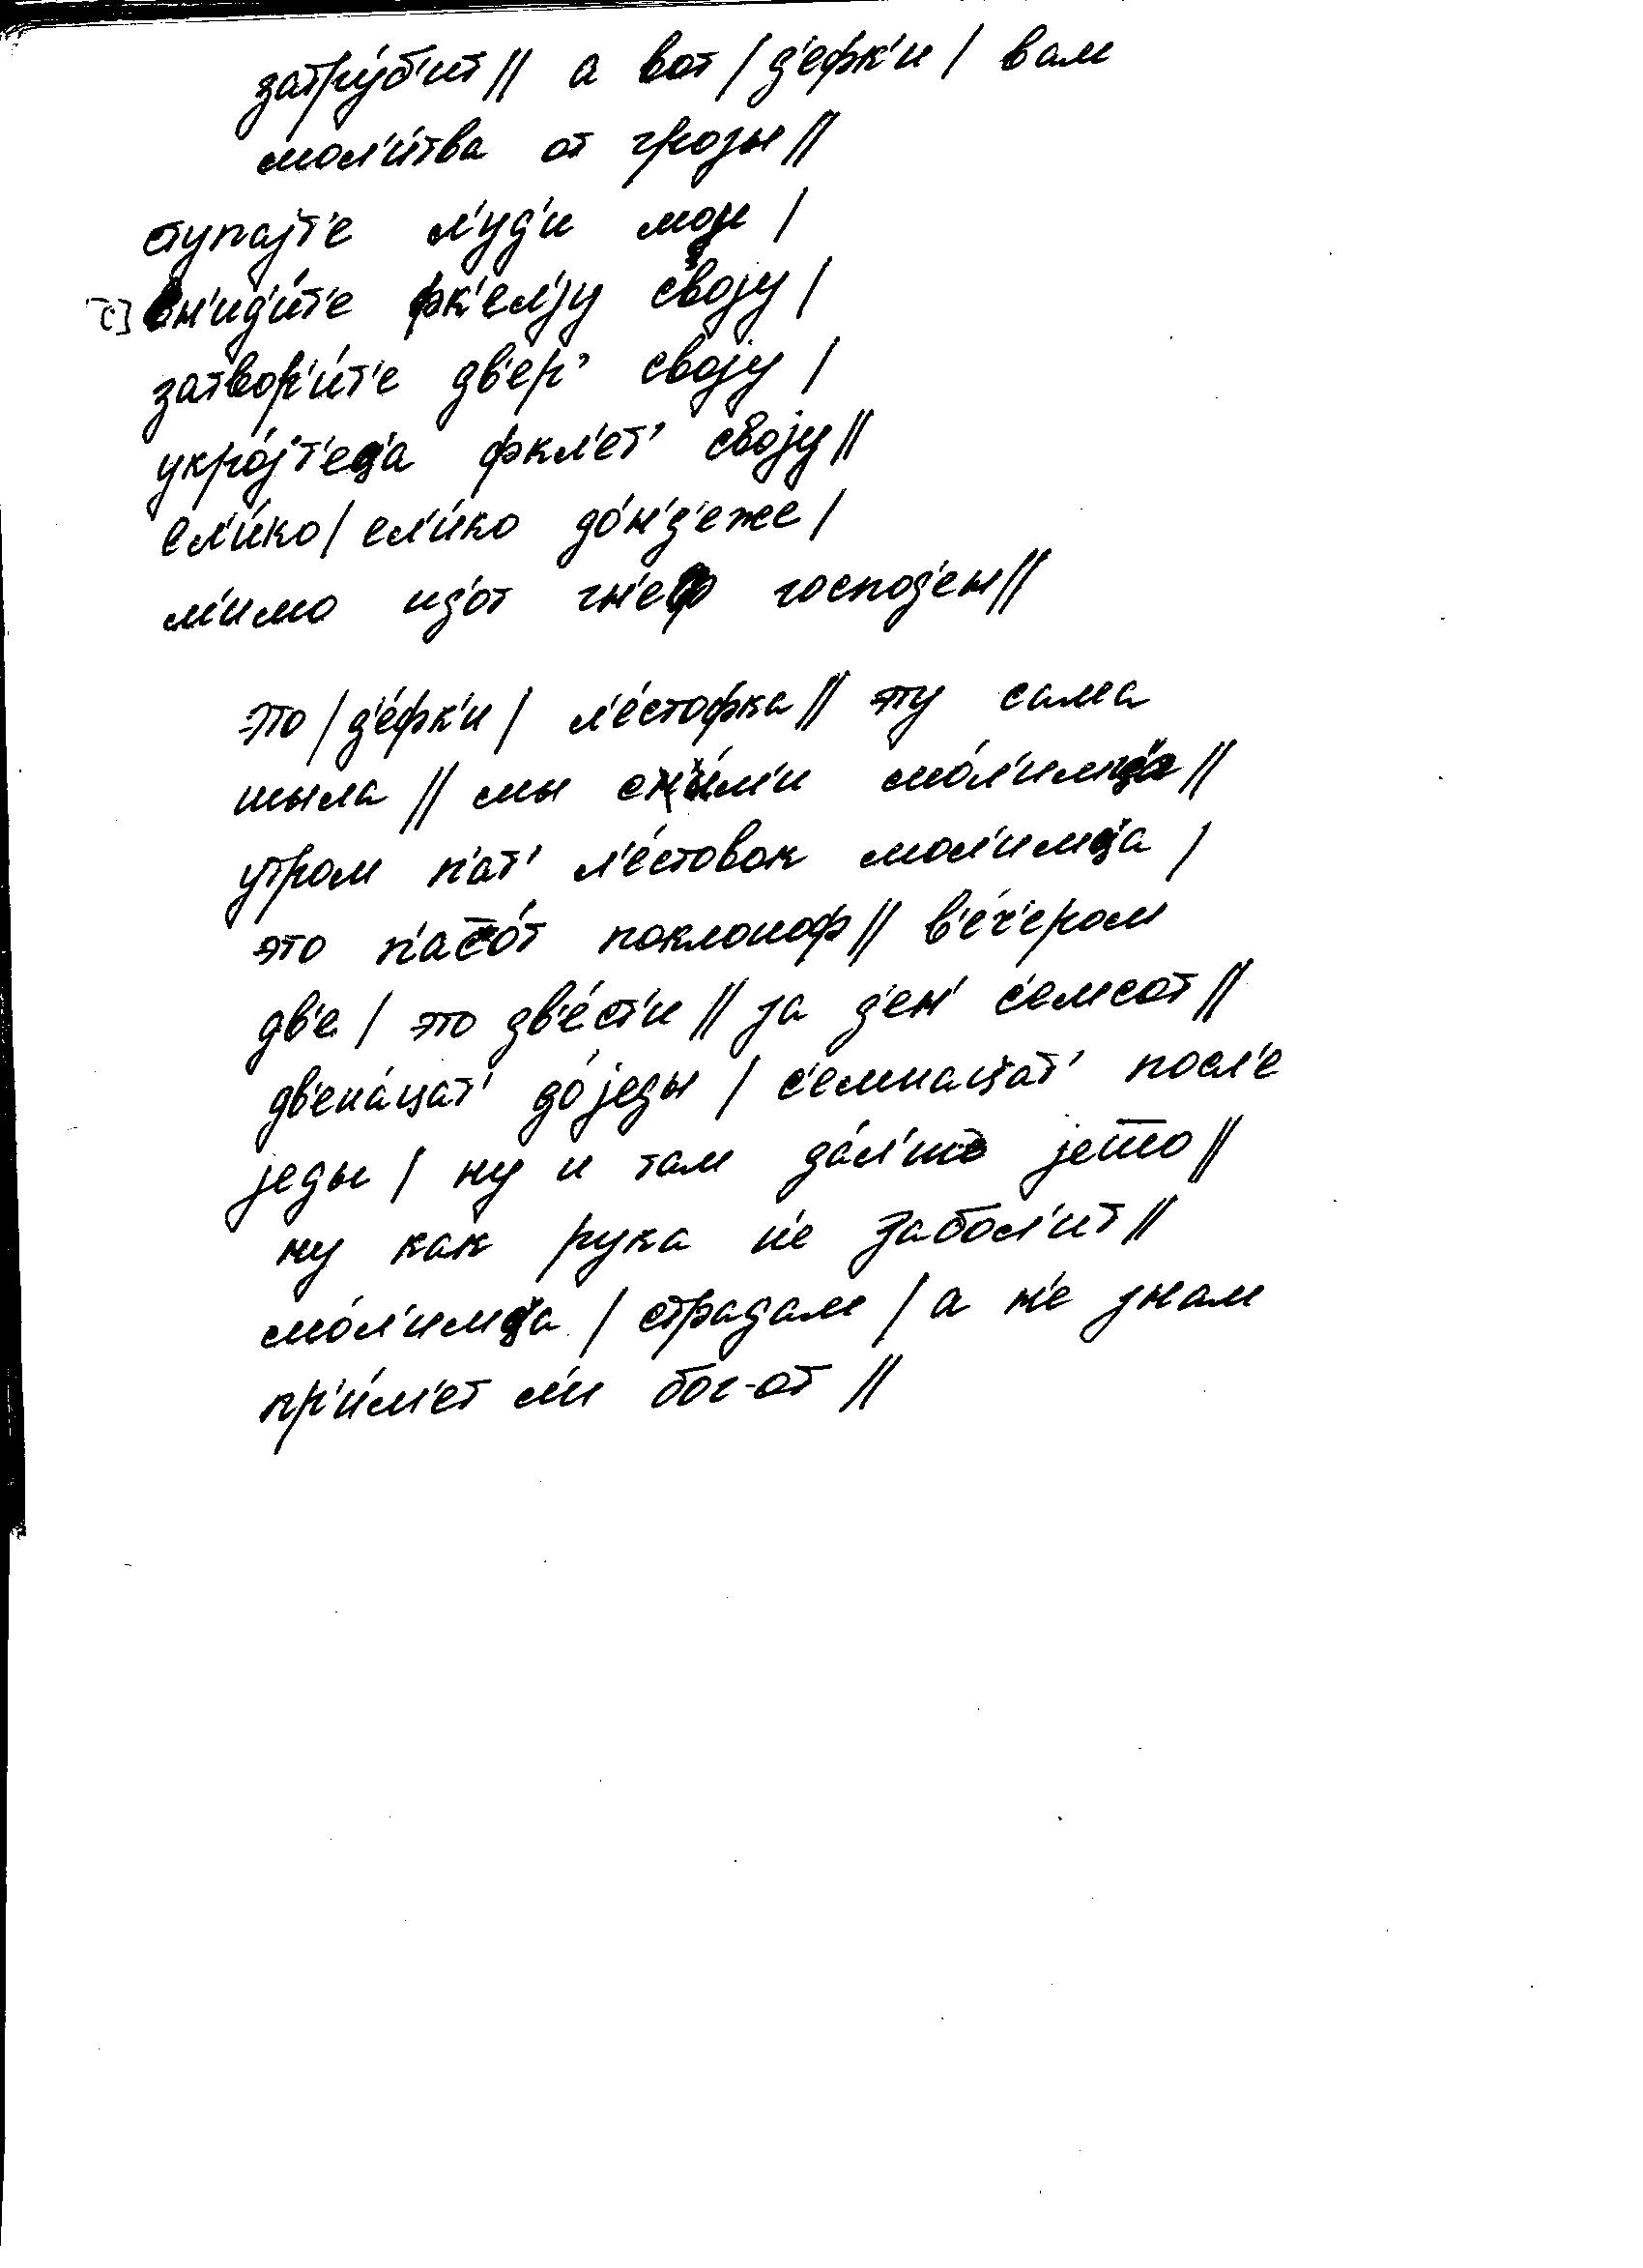 затру́б'ит // а вот / д'ефк'и / вам
мол'и́тва от грозы //
ступајт'е л'уд'и моји /
вн'ид'и́т'е фк'ел'jу своју /
затвор'и́т'е дв'ер' своју /
укро́јт'ес'а фкл'ет' своју //
ел'и́ко / ел'и́ко до́н'д'еже /
м'имо ид'от гн'еф господ'ен //
это / д'е́фк'и / л'е́стофка // эту сама
шыла // мы с н'и́м'и мо́л'имс'а //
утром п'ат' л'е́стовок мол'имс'а /
это п'ас̄о́т поклоноф // в'е́ч'ером
дв'е / это дв'е́ст'и // за д'ен' с'емсот //
дв'ена́цат' до́ једы / с'емнацат' посл'е
једы / ну и там да́л'шэ јето //
ну как рука н'е забол'ит //
мо́л'имс'а / страдам / а н'е знам
пр'и́м'ет л'и бог-от //